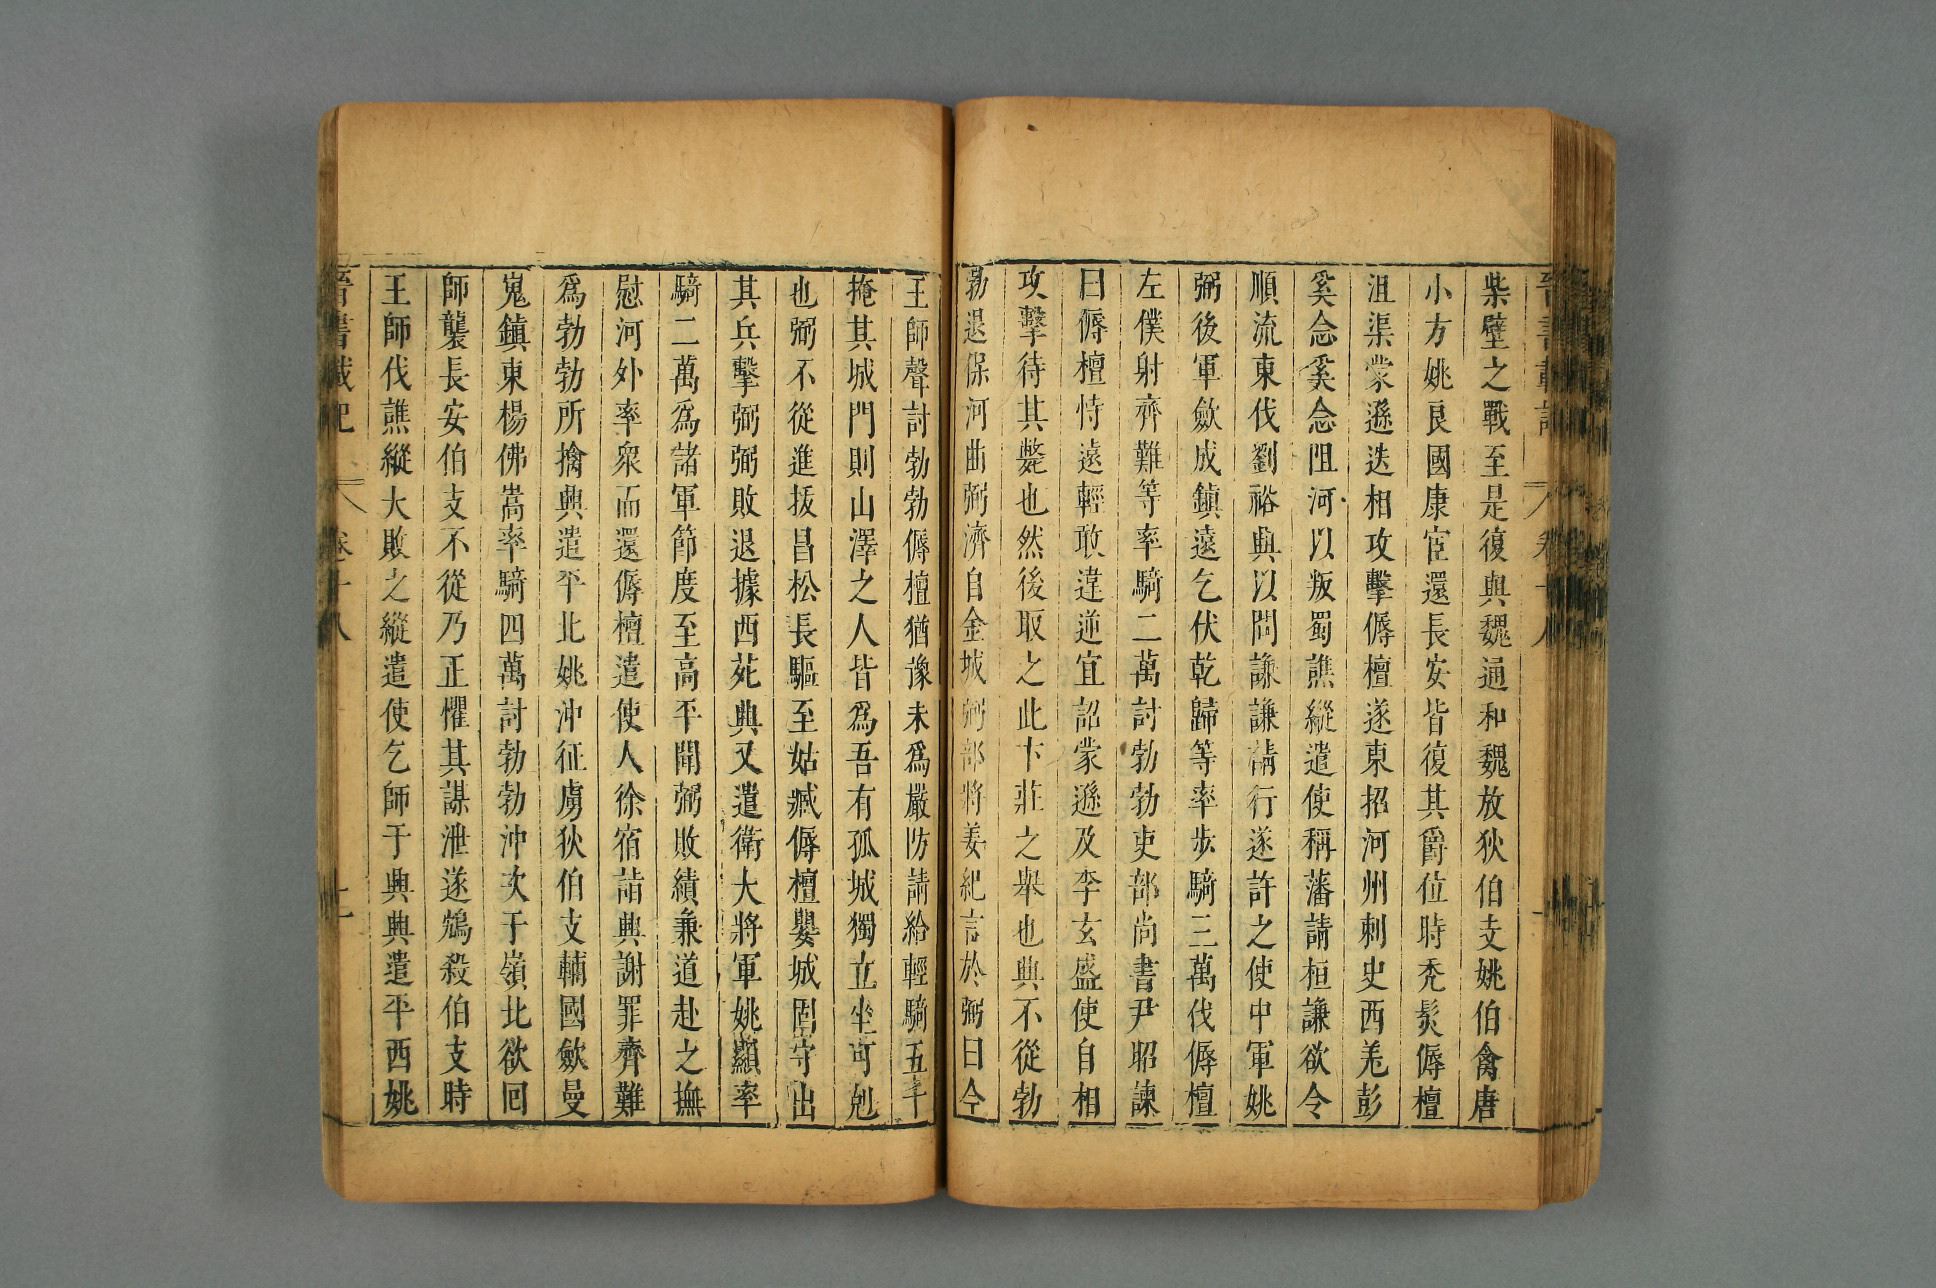 晉書載記 卷十八
柴壁之戰至是復與魏通和魏放狄伯支姚伯禽唐
小方姚良國康宦還長安皆復其爵位時禿髮傉檀
沮渠蒙遜迭相攻擊傉檀遂東招河州刺史西羌彭
奚念奚念阻河以叛蜀譙縱遣使稱藩請桓謙欲令
順流東伐劉裕興以問謙謙請行遂許之使中軍姚
弼後軍斂成鎮遠乞伏乾歸等率步騎三萬伐傉檀
左僕射齊難等率騎二萬討勃勃吏部尚書尹昭諫
曰傉檀恃遠輕敢違逆宜詔蒙遜及李玄盛使自相
攻擊待其斃也然後取之此卞莊之舉也興不從勃
勃退保河曲弼濟自金城弼部將姜紀言於弼曰今
王師聲討勃勃傉檀猶豫未爲嚴防請給輕騎五千
掩其城門則山澤之人皆爲吾有孤城獨立坐可剋
也弼不從進拔昌松長驅至姑臧傉檀嬰城固守出
其兵擊弼弼敗退據西苑興又遣衛大將軍姚顯率
騎二萬爲諸軍節度至高平聞弼敗績兼道赴之撫
慰河外率衆而還傉檀遣使人徐宿詣興謝罪齊難
爲勃勃所擒興遣平北姚沖征虜狄伯支輔國斂曼
嵬鎮東楊佛嵩率騎四萬討勃勃沖次于嶺北欲回
師襲長安伯支不從乃止懼其謀泄遂鴆殺伯支時
王師伐譙縱大敗之縱遣使乞師于興興遣平西姚
晉書載記 卷十八 十一